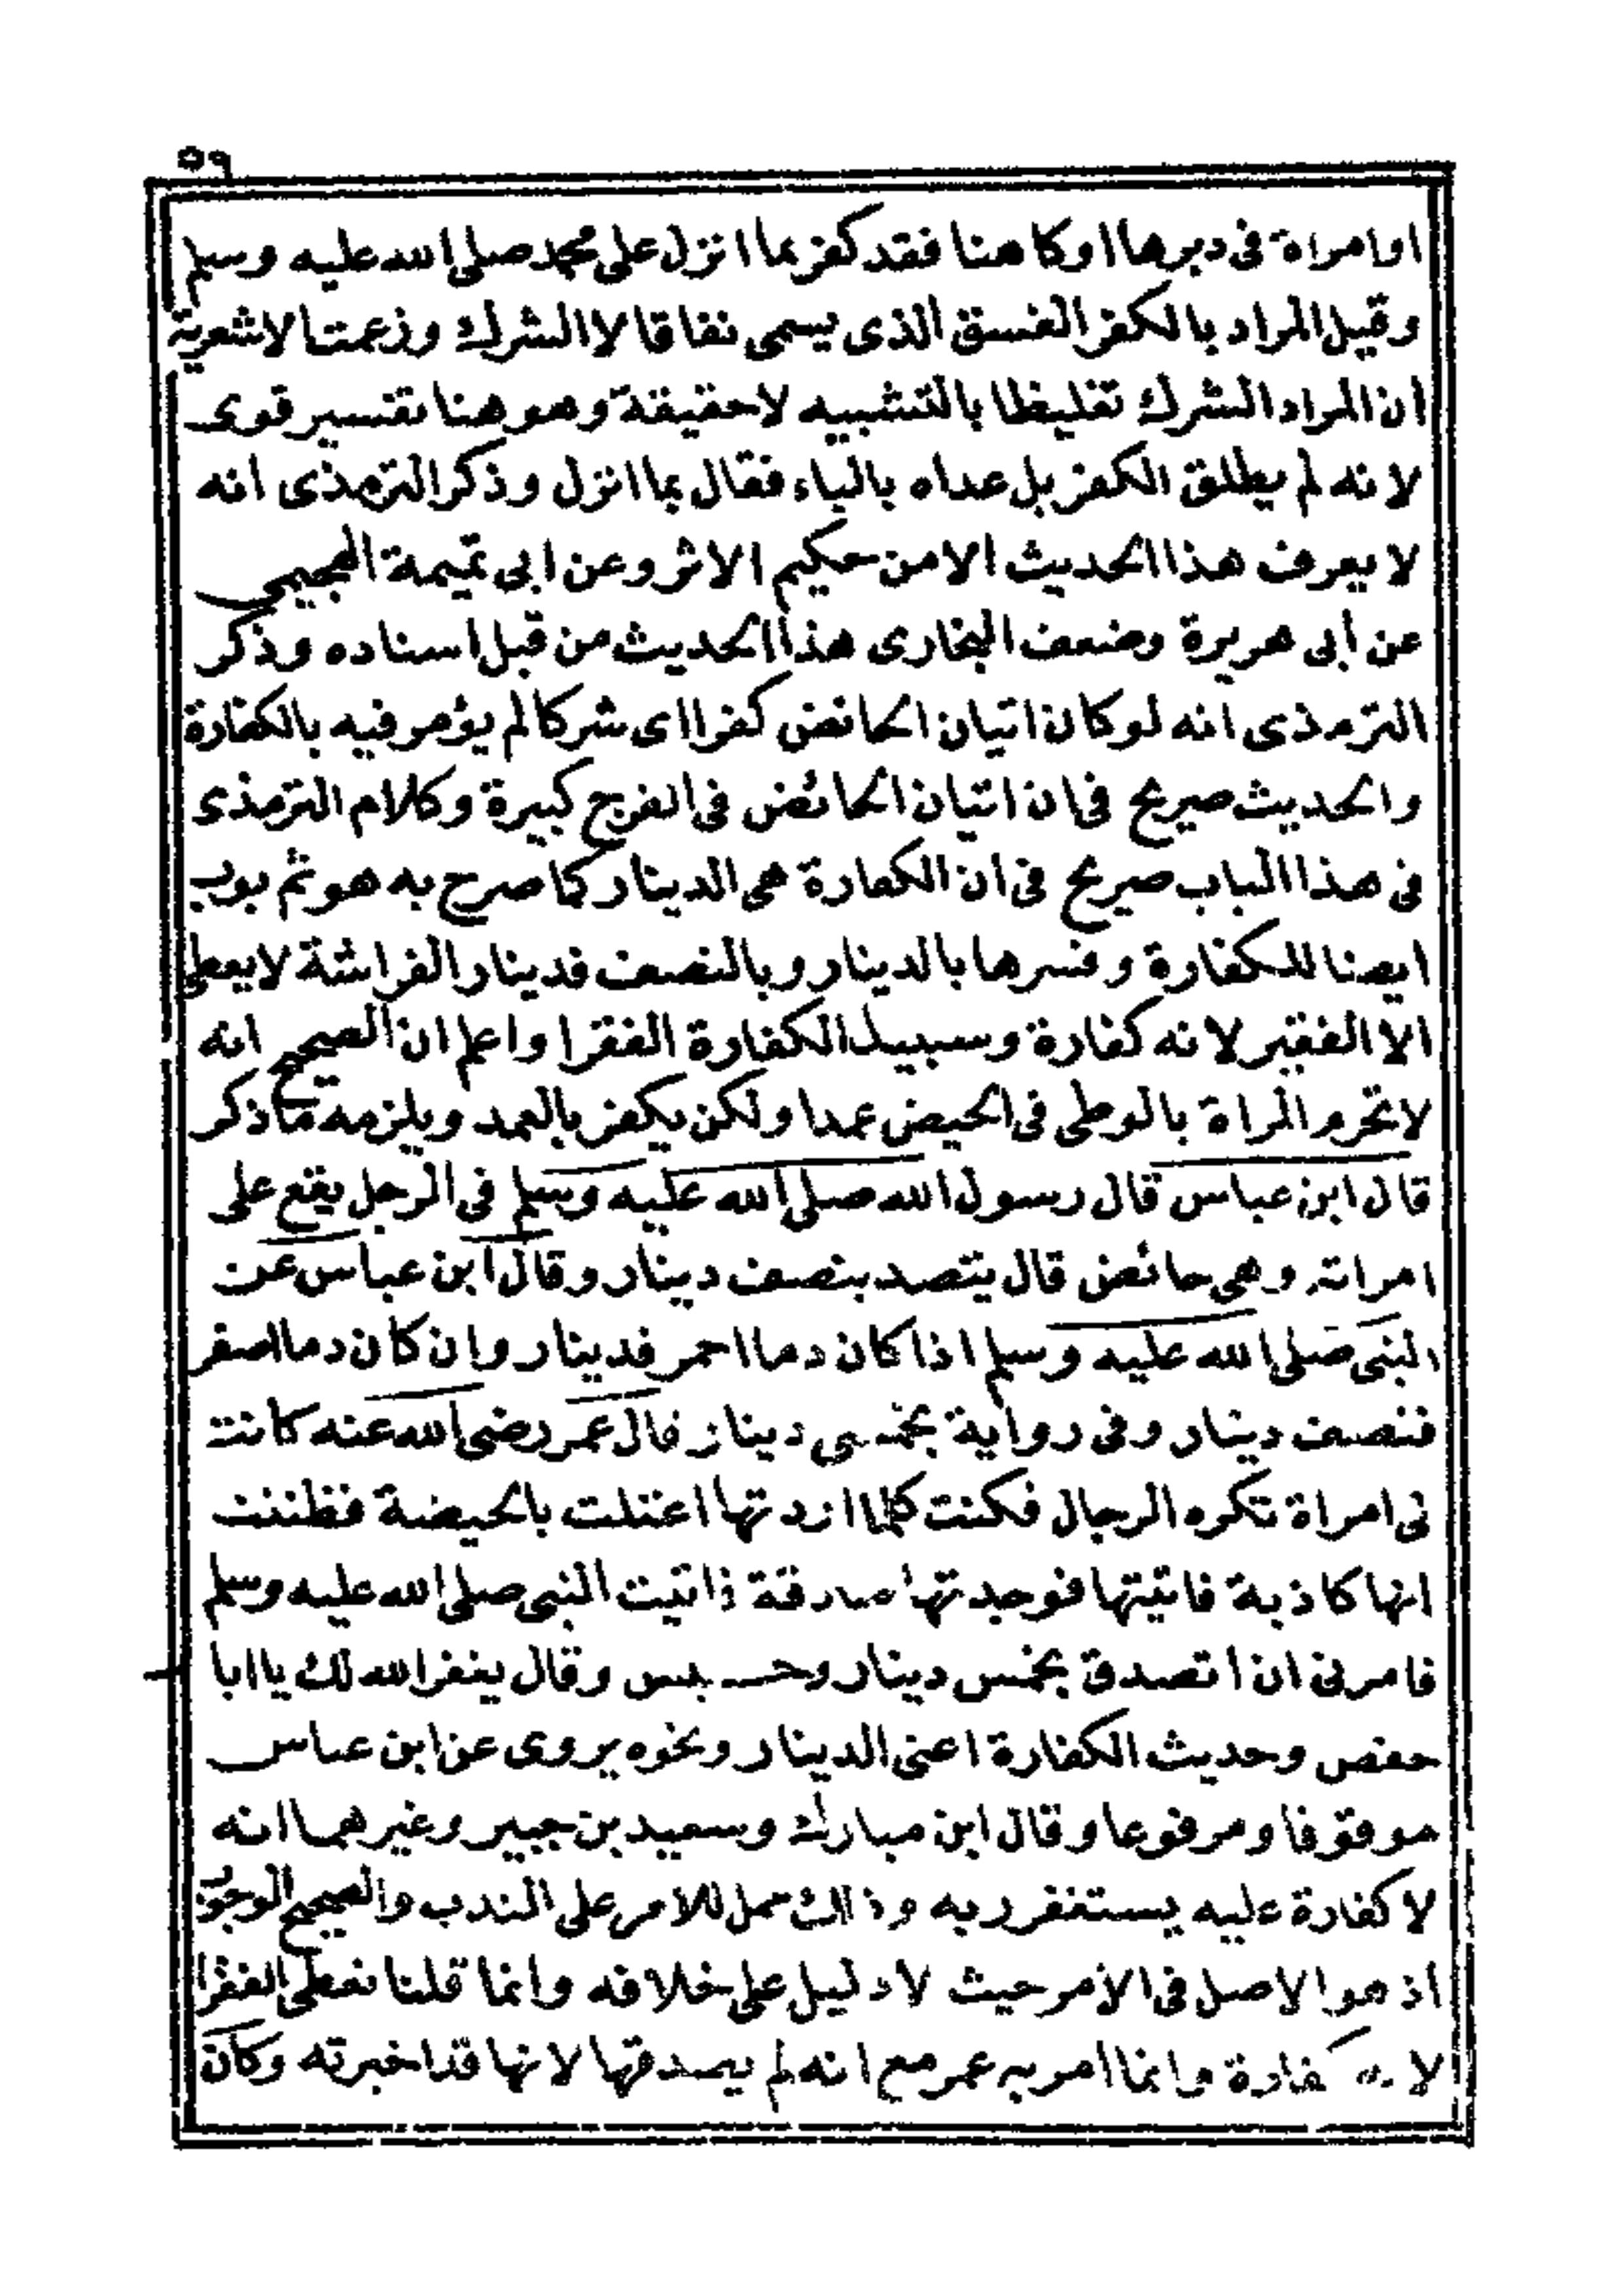 ٥٩
او امراة فى دبرها او كاهنا فقد كفر بما انزل على محمد صلى الله عليه وسلم
وقيل المراد بالكفر الفسق الذى يسمى نفاقا لا الشرك وزعمت الاشعرية
ان المراد الشرك تغليظا بالتشبيه لا حقيقة وهو هنا تفسير قوى
لانه لم يطلق الكفر بل عداه بالباء فقال بما انزل وذكر الترمذى انه
لا يعرف هذا الحديث الا من حكيم الاثر وعن ابى تميمة الهجيمى
عن أبى هريرة وضعف البخارى هذا الحديث من قبل اسناده وذكر
الترمذى انه لو كان اتيان الحائض كفرا اى شركا لم يؤمر فيه بالكفارة
والحديث صريح فى ان اتيان الحائض فى الفرج كبيرة وكلام الترمذى
فى هذا الباب صريح فى ان الكفارة هى الدينار كما صرح به هو ثم بوب
ايضا للكفارة وفسرها بالدينار وبالنصف فدينار الفراشة لا يعطى
الا الفقير لانه كفارة وسبيل الكفارة الفقرا واعلم ان الصحيح انه
لا تحرم المراة بالوطى فى الحيض عمدا ولكن يكفر بالعمد ويلزمه ما ذكر
قال ابن عباس قال رسول الله صلى الله عليه وسلم فى الرجل يقع على
امراته وهى حائض قال يتصد بنصف دينار وقال ابن عباس عن
النبى صلى الله عليه وسلم اذا كان دما احمر فدينار وان كان دما اصفر
فنصف دينار وفى رواية بخمسى دينار قال عمر رضى الله عنه كانت
لى امراة تكره الرجال فكنت كلما اردتها اعتلت بالحيضة فظننت
انها كاذبة فاتيتها فوجدتها صادقة فاتيت النبى صلى الله عليه وسلم
فامرنى ان اتصدق بخمس دينار وقال يغفر الله لك يا ابا
حفص وحديث الكفارة اعنى الدينار ونحوه يروى عن ابن عباس
موقوفا ومرفوعا وقال ابن مبارك وسعيد بن جبير وغيرهما انه
لا كفارة عليه يستغفر ربه وذلك حمل للامر على الندب والصحيح الوجوب
اذ هو الاصل فى الأمر حيث لا دليل على خلافه وانما قلنا نعطى الفقرا
لانه كفارة وانما امر به عمر مع انه لم يصدقها لانها قد اخبرته وكان